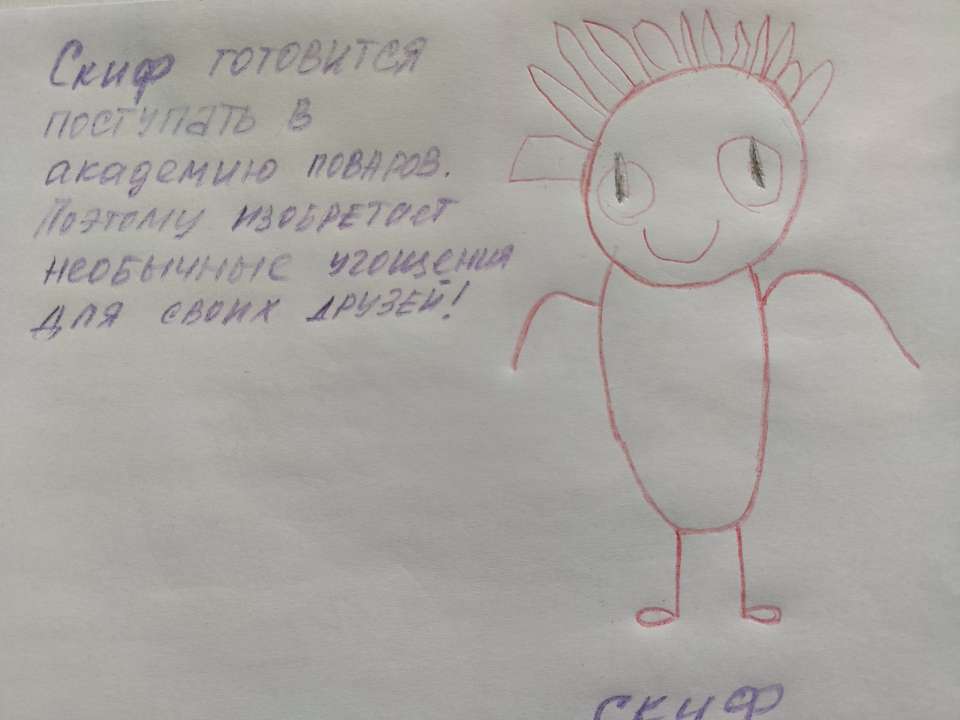 Скиф готовится
поступать в
академию поваров.
Поэтому изобретает
необычные угощения
для своих друзей!
скиф